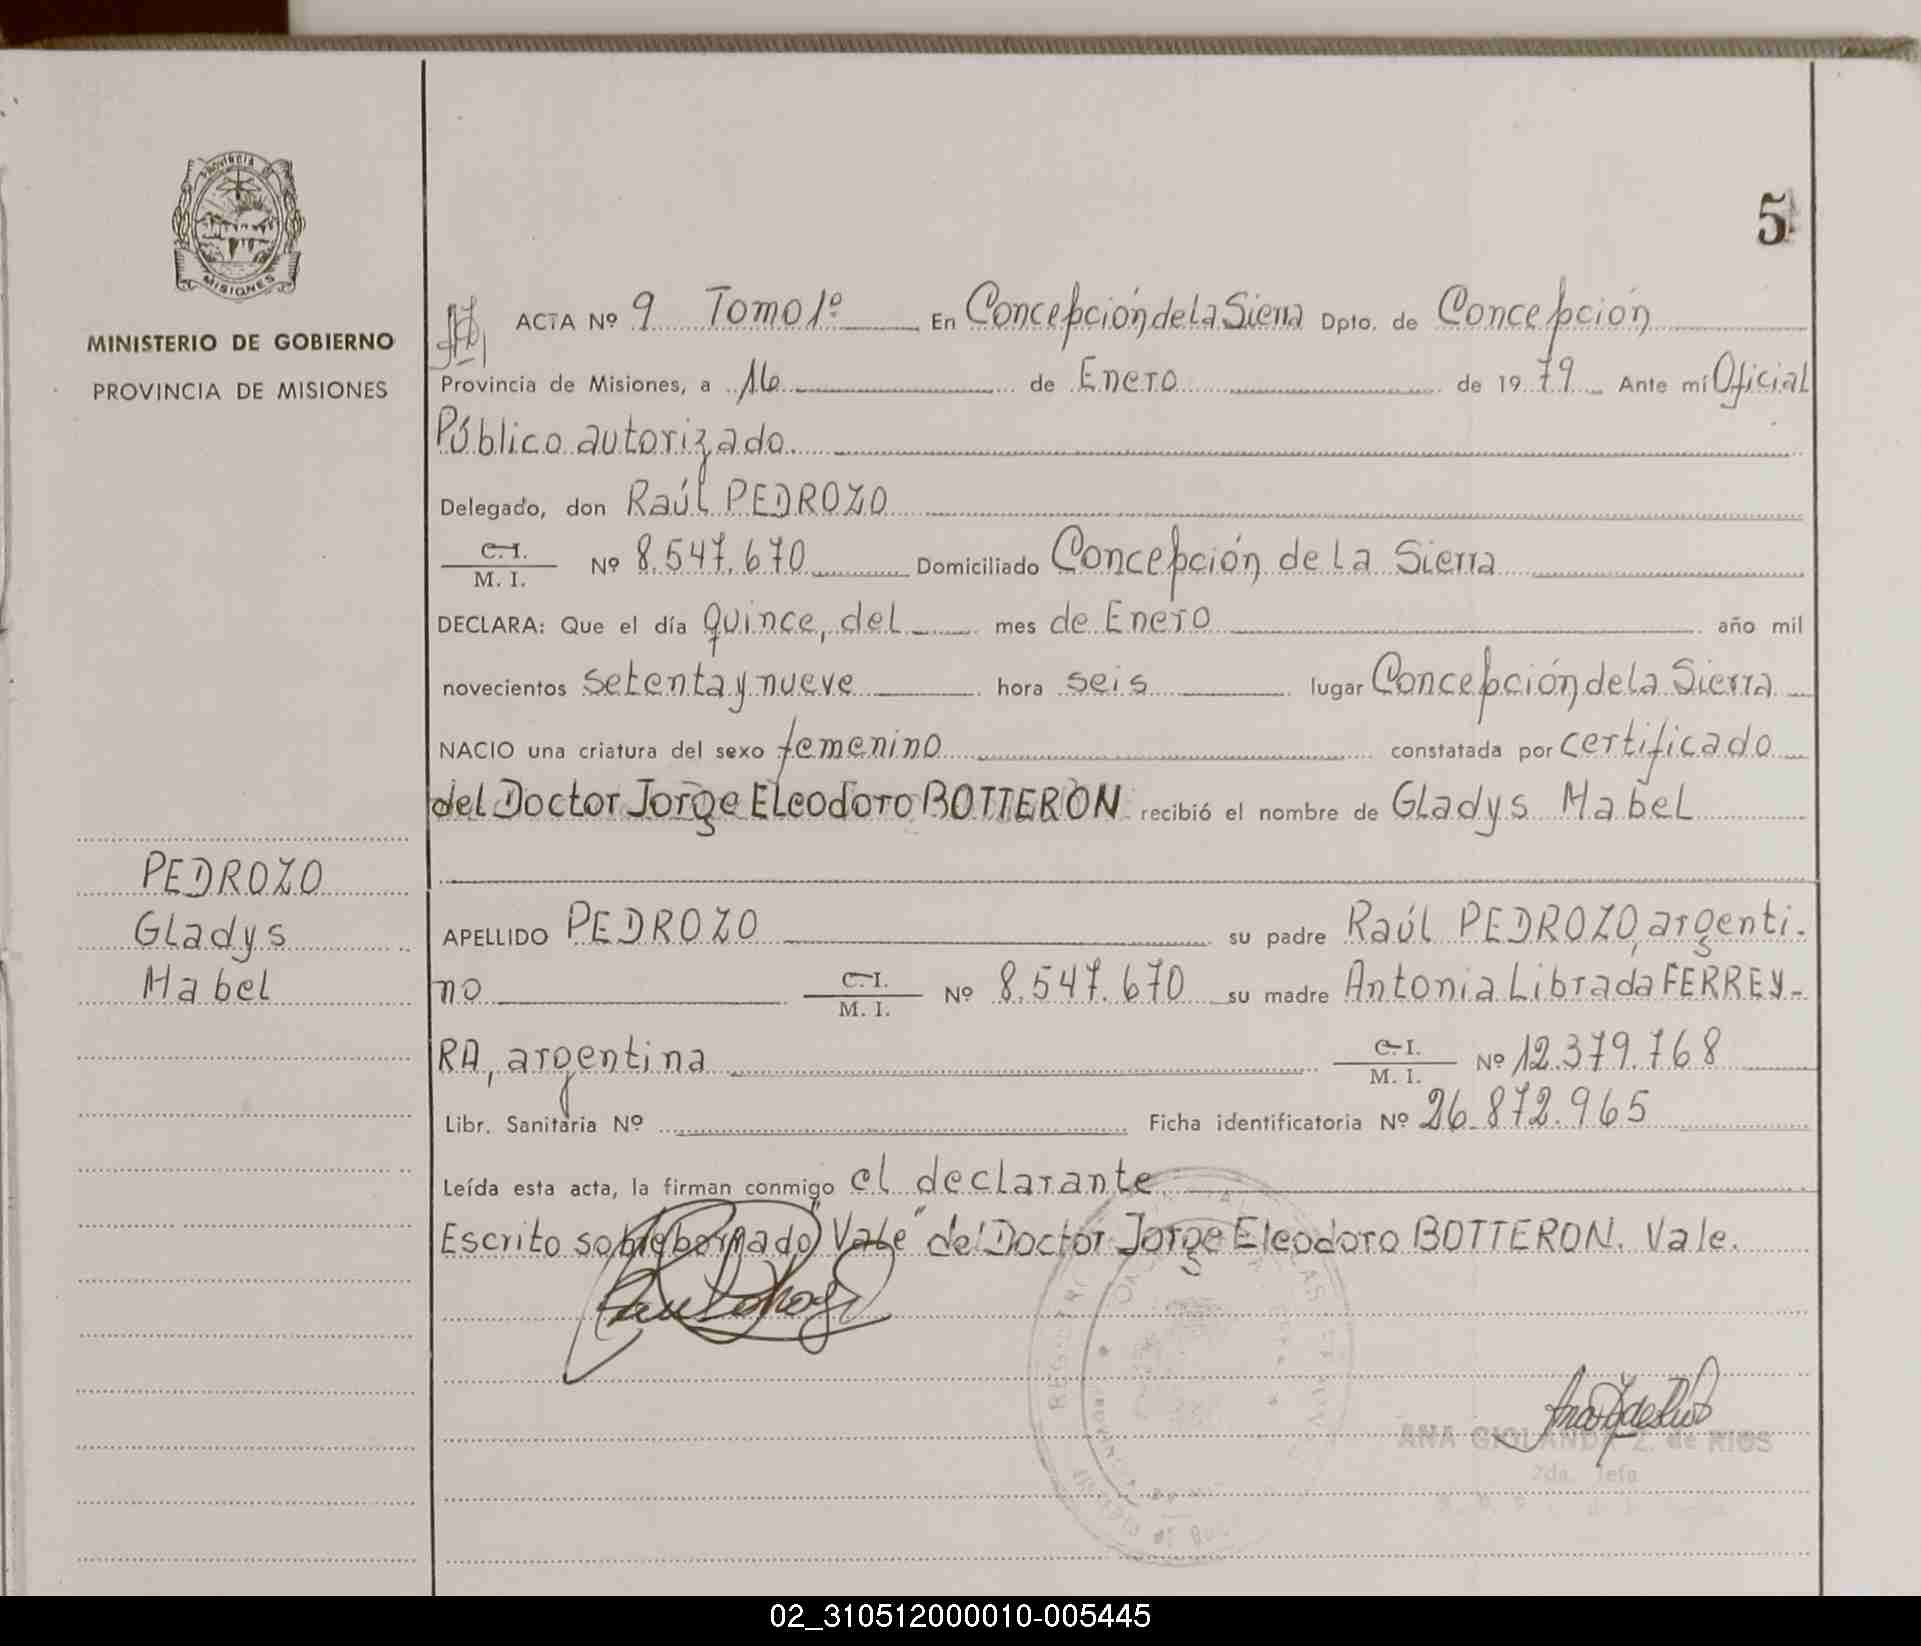 5
PROVINCIA DE
MISIONES
MINISTERIO DE GOBIERNO
PROVINCIA DE MISIONES
PEDROZO
Gladys
Mabel
ACTA Nº 9 Tomo 1º En Concepción de la Sierra Dpto. de Concepción
Provincia de Misiones, a 16 de Enero de 1979 Ante mí Oficial
Público autorizado.
Delegado, don Raúl PEDROZO
C. I. M. I. Nº 8.547.670 Domiciliado Concepción de La Sierra
DECLARA: Que el día quince, del mes de Enero año mil
novecientos setenta y nueve hora seis lugar Concepción de la Sierra
NACIO una criatura del sexo femenino constatada por certificado
del Doctor Jorge Eleodoro BOTTERON recibió el nombre de Gladys Mabel
APELLIDO PEDROZO su padre Raúl PEDROZO, argenti-
no C. I. M. I. Nº 8.547.670 su madre Antonia Librada FERREY-
RA, argentina C. I. M. I. Nº 12.379.768
Libr. Sanitaria Nº Ficha identificatoria Nº 26.872.965
Leída esta acta, la firman conmigo el declarante
Escrito sobreborrado "Vale" del Doctor Jorge Eleodoro BOTTERON. Vale.
ANA GIOLANDA Z. de RIOS
2da. Jefa
02_310512000010-005445